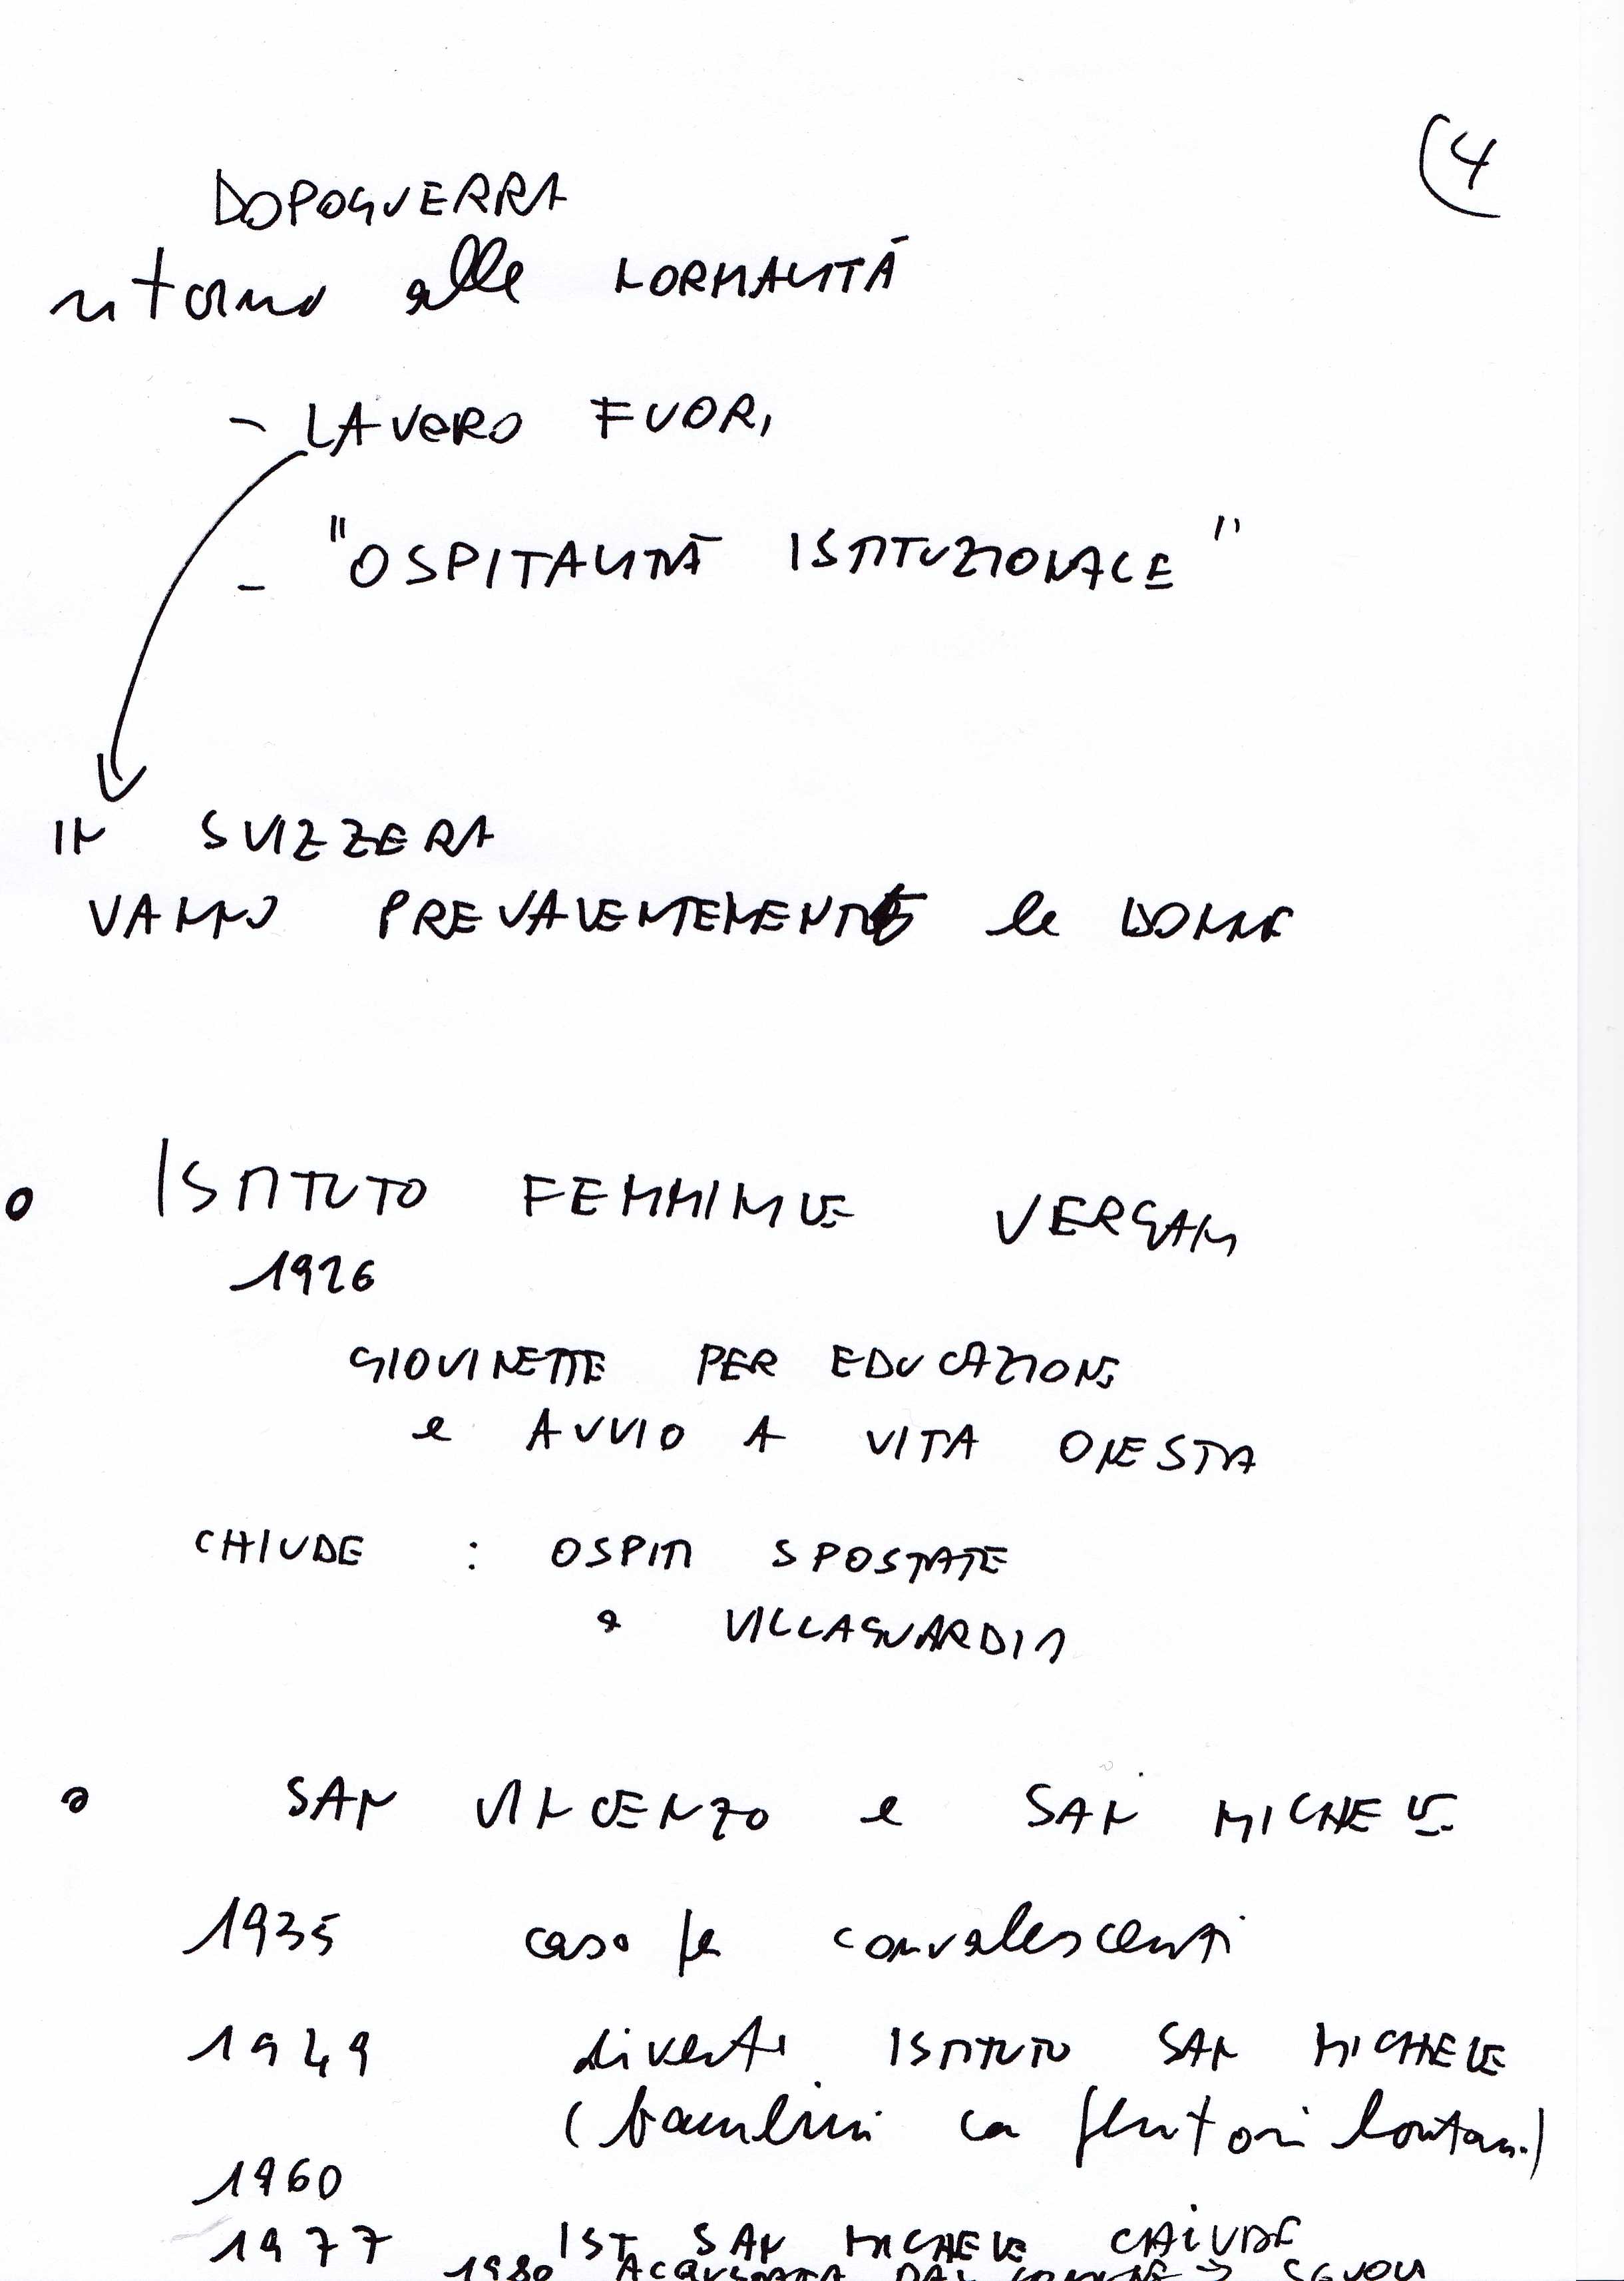 (4
DOPOGUERRA
ritorno alla NORMALITÀ
- LAVORO FUORI
- "OSPITALITÀ ISTITUZIONALE"
IN SVIZZERA
VANNO PREVALENTEMENTE le DONNE
o ISTITUTO FEMMINILE VERGANI
1926
GIOVINETTE PER EDUCAZIONE
e AVVIO A VITA ONESTA
CHIUDE : OSPITI SPOSTATE
a VILLAGUARDIA
o SAN VINCENZO e SAN MICHELE
1935 casa per convalescenti
1949 diventa ISTITUTO SAN MICHELE
(bambini con genitori lontani)
1960
1977 IST SAN MICHELE CHIUDE
1980 ACQUISTATA DAL COMUNE → SCUOLA